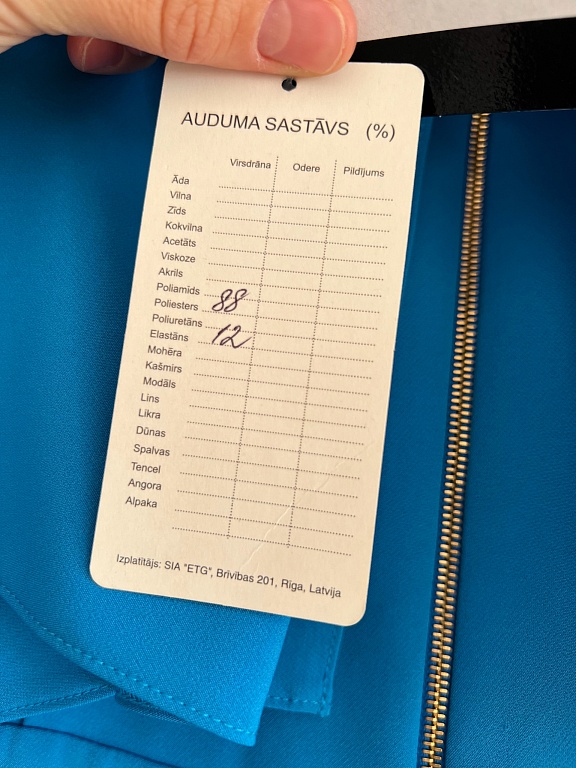 AUDUMA SASTĀVS (%)
Virsdrāna Odere Pildījums
Āda
Vilna
Zīds
Kokvilna
Acetāts
Viskoze
Akrils
Poliamīds
Poliesters 88
Poliuretāns
Elastāns 12
Mohēra
Kašmirs
Modāls
Lins
Likra
Dūnas
Spalvas
Tencel
Angora
Alpaka
Izplatītājs: SIA "ETG", Brīvības 201, Rīga, Latvija